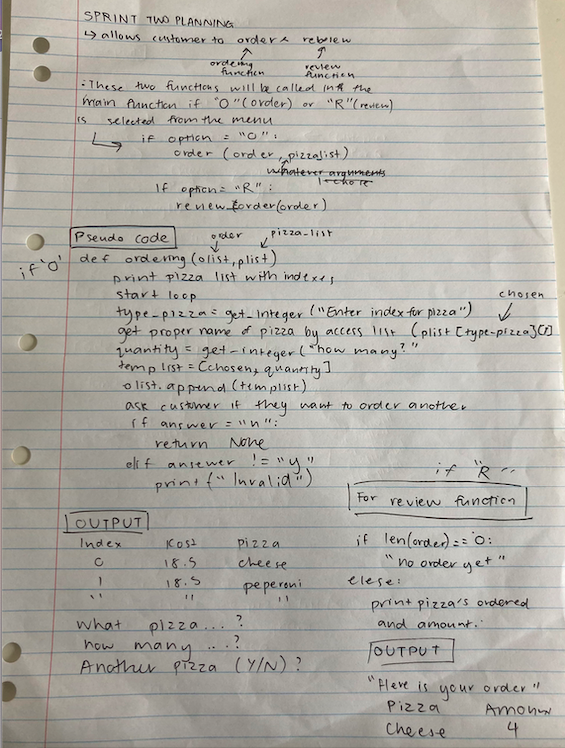 SPRINT TWO PLANNING
↳ allows customer to order & rebview
ordering function
review function
: These two functions will be called in the
main function if "O" (order) or "R" (review)
is selected from the menu
if option = "O":
order (order, pizzalist)
whatever arguments
I chose
If option = "R":
review (order)
Pseudo code
order
pizza-list
if 'O'
def ordering (olist, plist)
print pizza list with indexes
start loop
type-pizza = get_integer ("Enter index for pizza")
chosen
get proper name of pizza by access list (plist [type-pizza]
quantity = get-integer ("how many?"
temp list = [chosen, quantity]
olist.append (templist)
ask customer if they want to order another
if answer = "n":
return None
elif ansewer != "y"
print ("Invalid")
if "R"
For review function
if len(order) == 0:
"no order yet"
elese:
print pizza's ordered
and amount.
OUTPUT
"Here is your order"
Pizza Amoun
Cheese 4
OUTPUT
Index Kost Pizza
0 18.5 cheese
1 18.5 peperoni
" " "
What pizza...?
how many ...?
Another pizza (Y/N)?